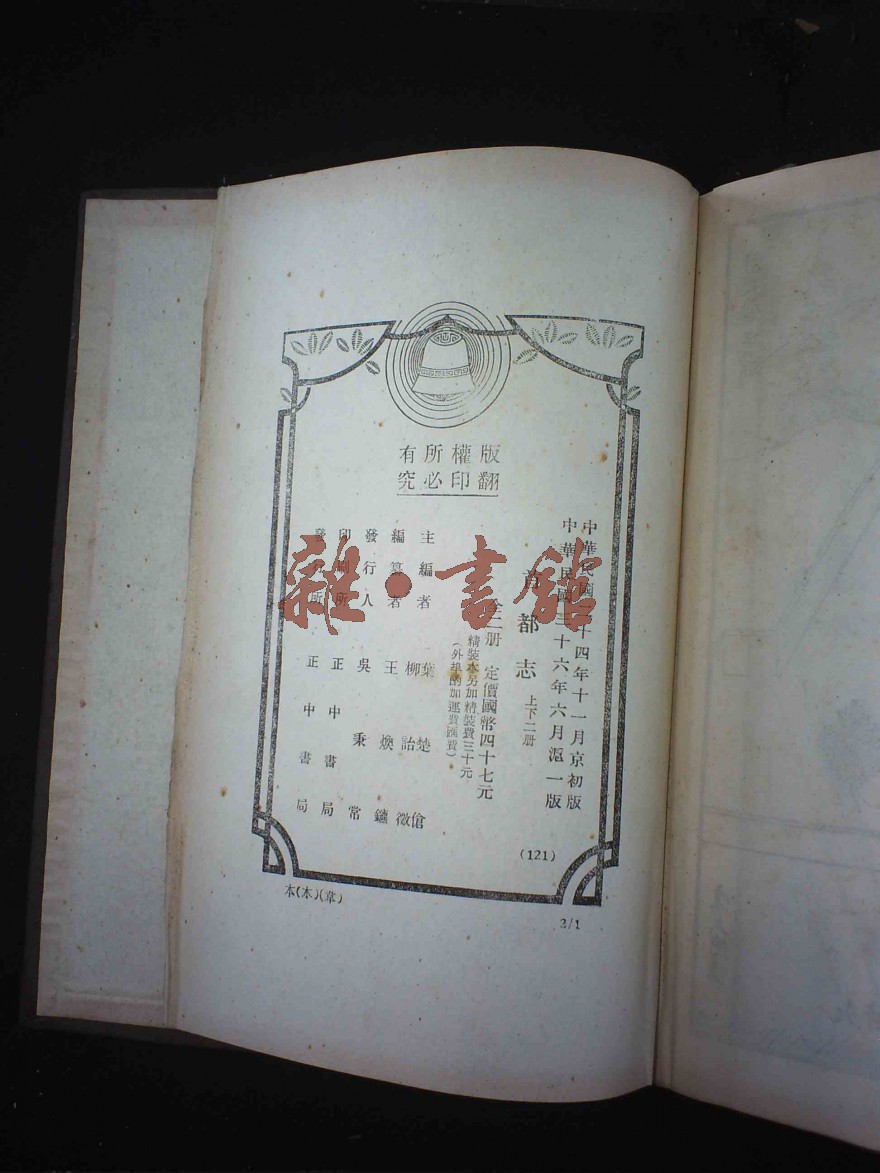 版權所有
翻印必究
中華民國二十四年十一月京初版
中華民國三十六年六月滬一版
首都志 上下二册
全二册 定價國幣四十七元
精裝本另加精裝費三十元
(外埠酌加運費匯費)
主編者 葉楚傖
編纂者 柳詒徵 王煥鑣
發行人 吳秉常
印刷所 正中書局
發行所 正中書局
(121)
本(本)(章)
2/1
雜·書館